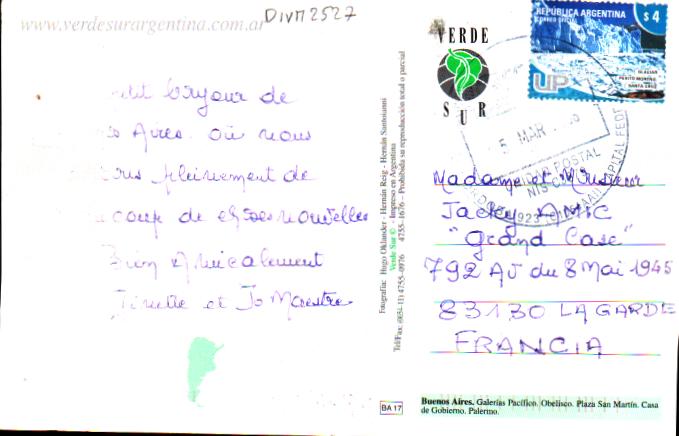 www.verdesurargentina.com.ar
DIVM2527
tit bonjour de
Aires où nous
pleinement de
coup de choses nouvelles
Bien Amicalement
et Jo Maestre
Fotografía: Hugo Oklander - Hernán Reig - Hernán Santoianni
Verde Sur © - Impreso en Argentina
Tel/Fax: (0054-11) 4755-0976 4755-1676 - Prohibida su reproducción total o parcial
VERDE
SUR
REPÚBLICA ARGENTINA
CORREO OFICIAL
$4
GLACIAR
PERITO MORENO
SANTA CRUZ
UP
5 MAR
POSTAL
CAPITAL FEDE
Madame et Monsieur
Jacky AMIC
"Grand Case"
792 AV du 8 Mai 1945
83130 LA GARDE
FRANCIA
BA 17
Buenos Aires. Galerías Pacífico. Obelisco. Plaza San Martín. Casa
de Gobierno. Palermo.